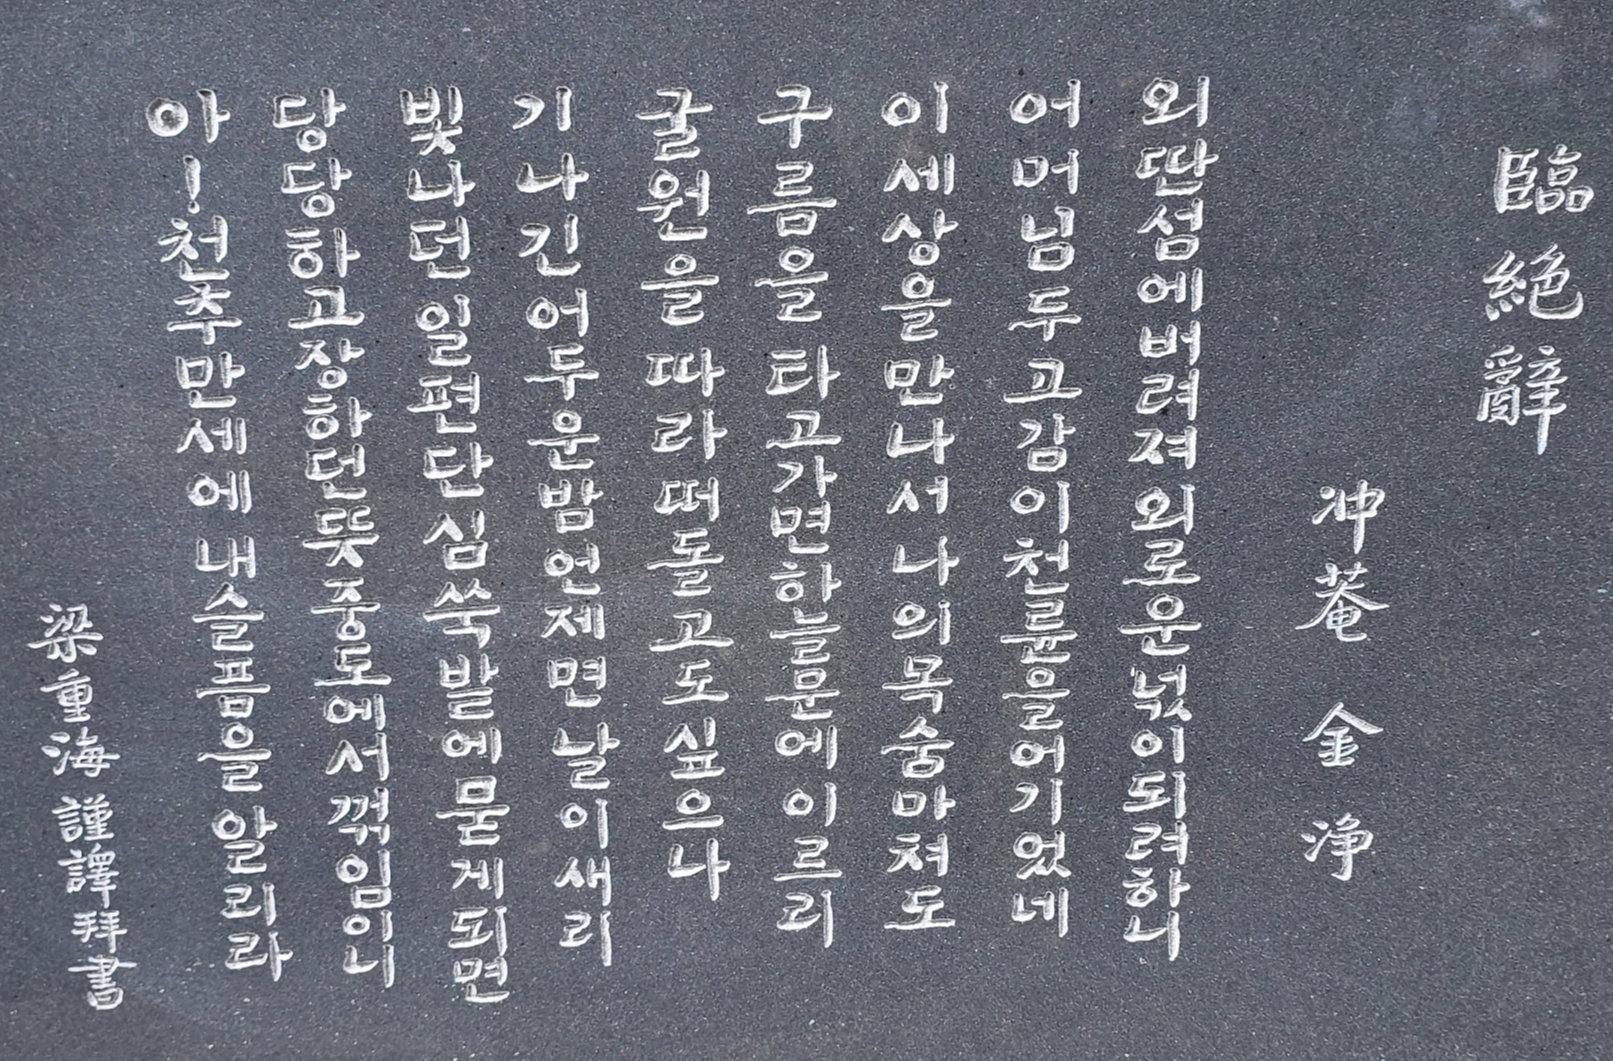 臨絶辭
冲菴 金淨
외딴섬에버려져외로운넋이되려하니
어머님두고감이천륜을어기었네
이세상을만나서나의목숨마쳐도
구름을 타고가면하늘문에이르리
굴원을 따라 떠돌고도싶으나
기나긴어두운밤언제면날이새리
빛나던일편단심쑥밭에묻게되면
당당하고장하던뜻중도에서꺾임이니
아!천추만세에 내슬픔을 알리라
梁重海 謹譯拜書